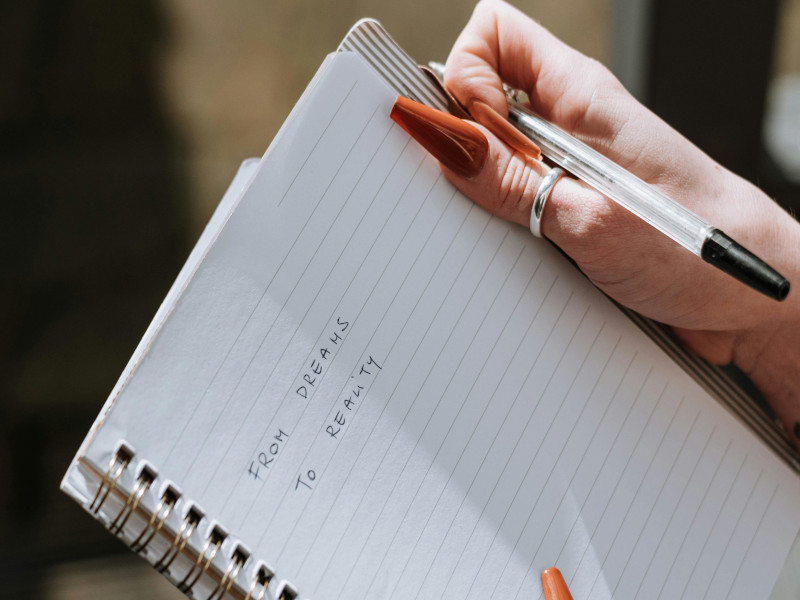 FROM DREAMS
TO REALITY